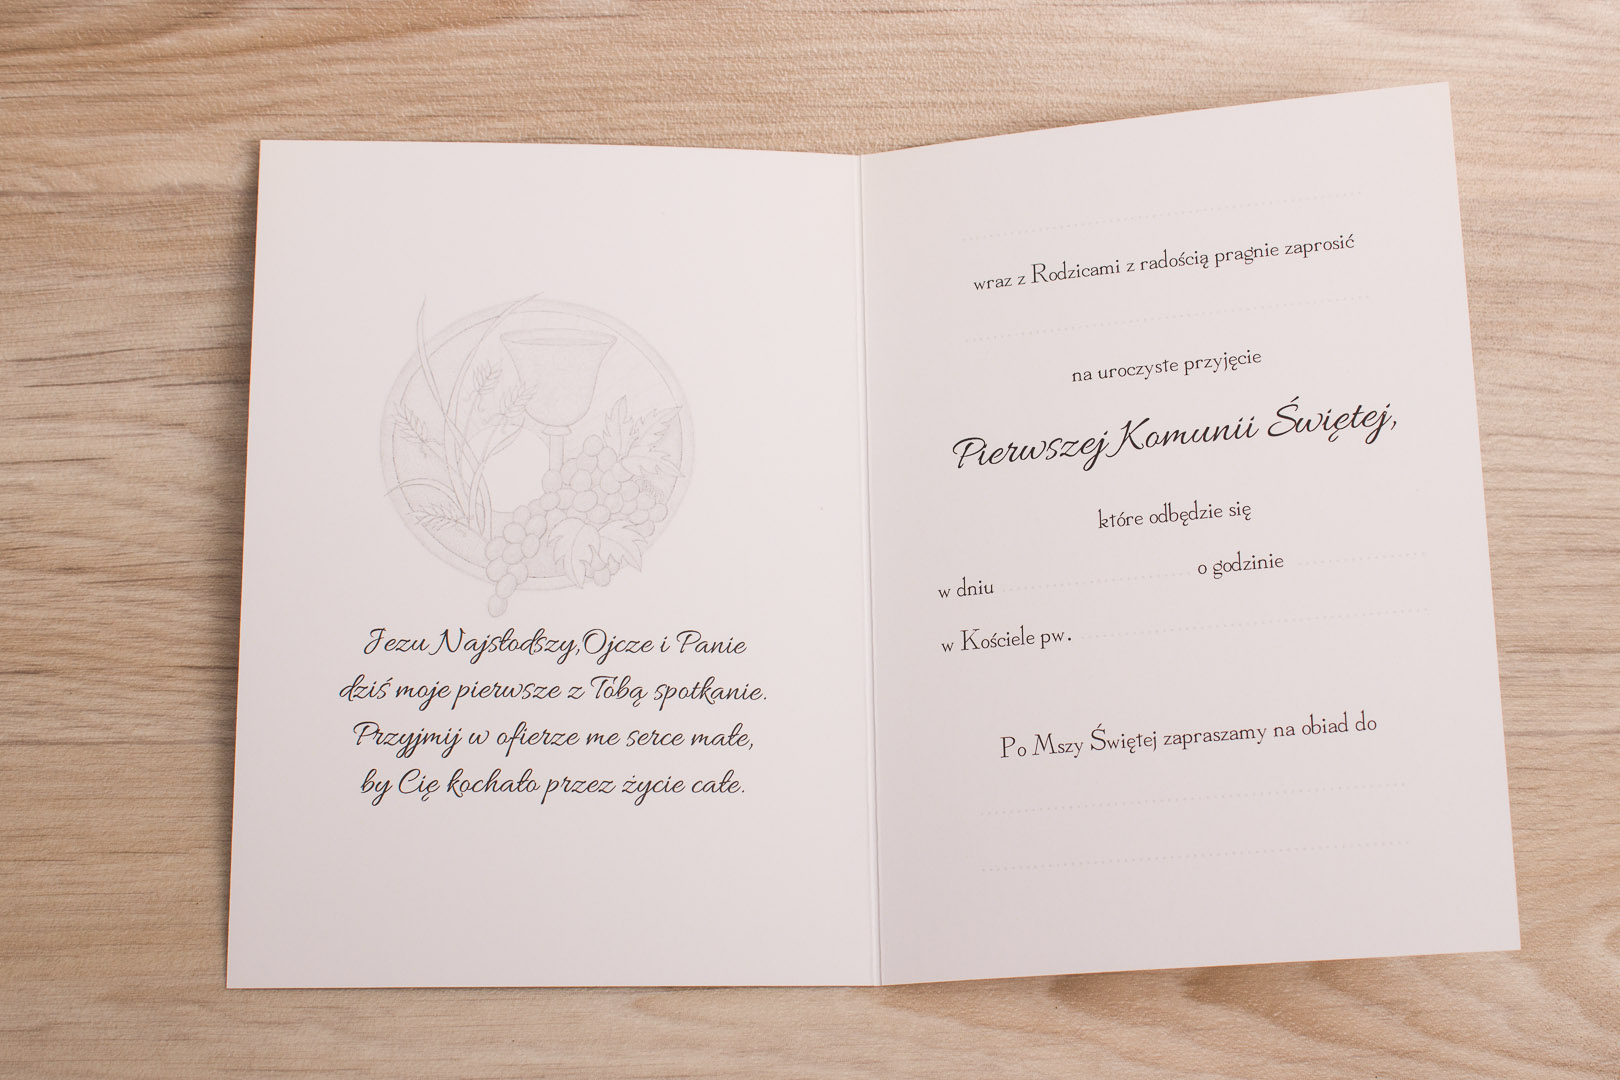 Jezu Najsłodszy,Ojcze i Panie
dziś moje pierwsze z Tobą spotkanie.
Przyjmij w ofierze me serce małe,
by Cię kochało przez życie całe.
wraz z Rodzicami z radością pragnie zaprosić
na uroczyste przyjęcie
Pierwszej Komunii Świętej,
które odbędzie się
w dniu o godzinie
w Kościele pw.
Po Mszy Świętej zapraszamy na obiad do